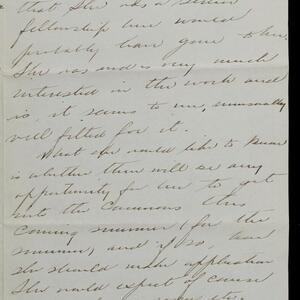 that she has a
fellowship here would
probably have gone there.
She was and is very much
interested in the work and
is, it seems to me, unusually
well fitted for it.
What she would like to know
is whether there will be any
opportunity for her to get
into the Commons this
coming summer (for the
summer, and if so how
she should make application
She would expect of course